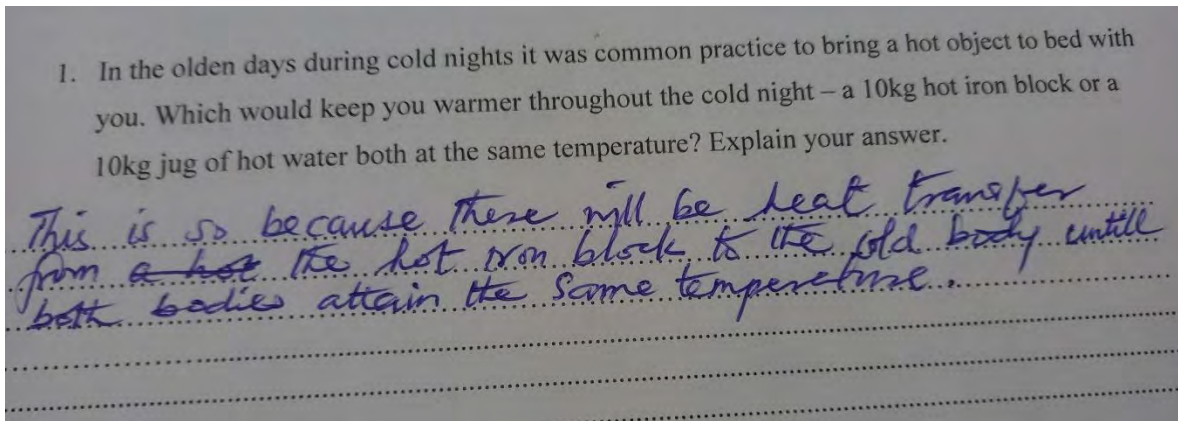 1. In the olden days during cold nights it was common practice to bring a hot object to bed with
you. Which would keep you warmer throughout the cold night – a 10kg hot iron block or a
10kg jug of hot water both at the same temperature? Explain your answer.
This is so because there will be heat transfer
from a hot the hot iron block to the cold body untill
both bodies attain the same temperature.